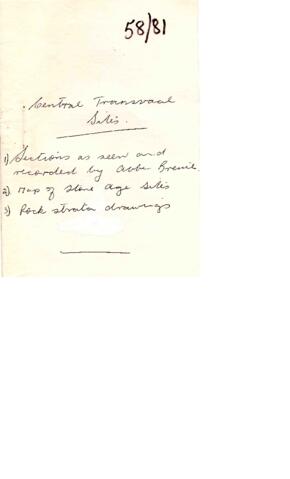 58/81
Central Transvaal
Sites.
1) Sections as seen and
recorded by Abbe Breuil.
2) Map of Stone Age Sites
3) Rock strata drawings